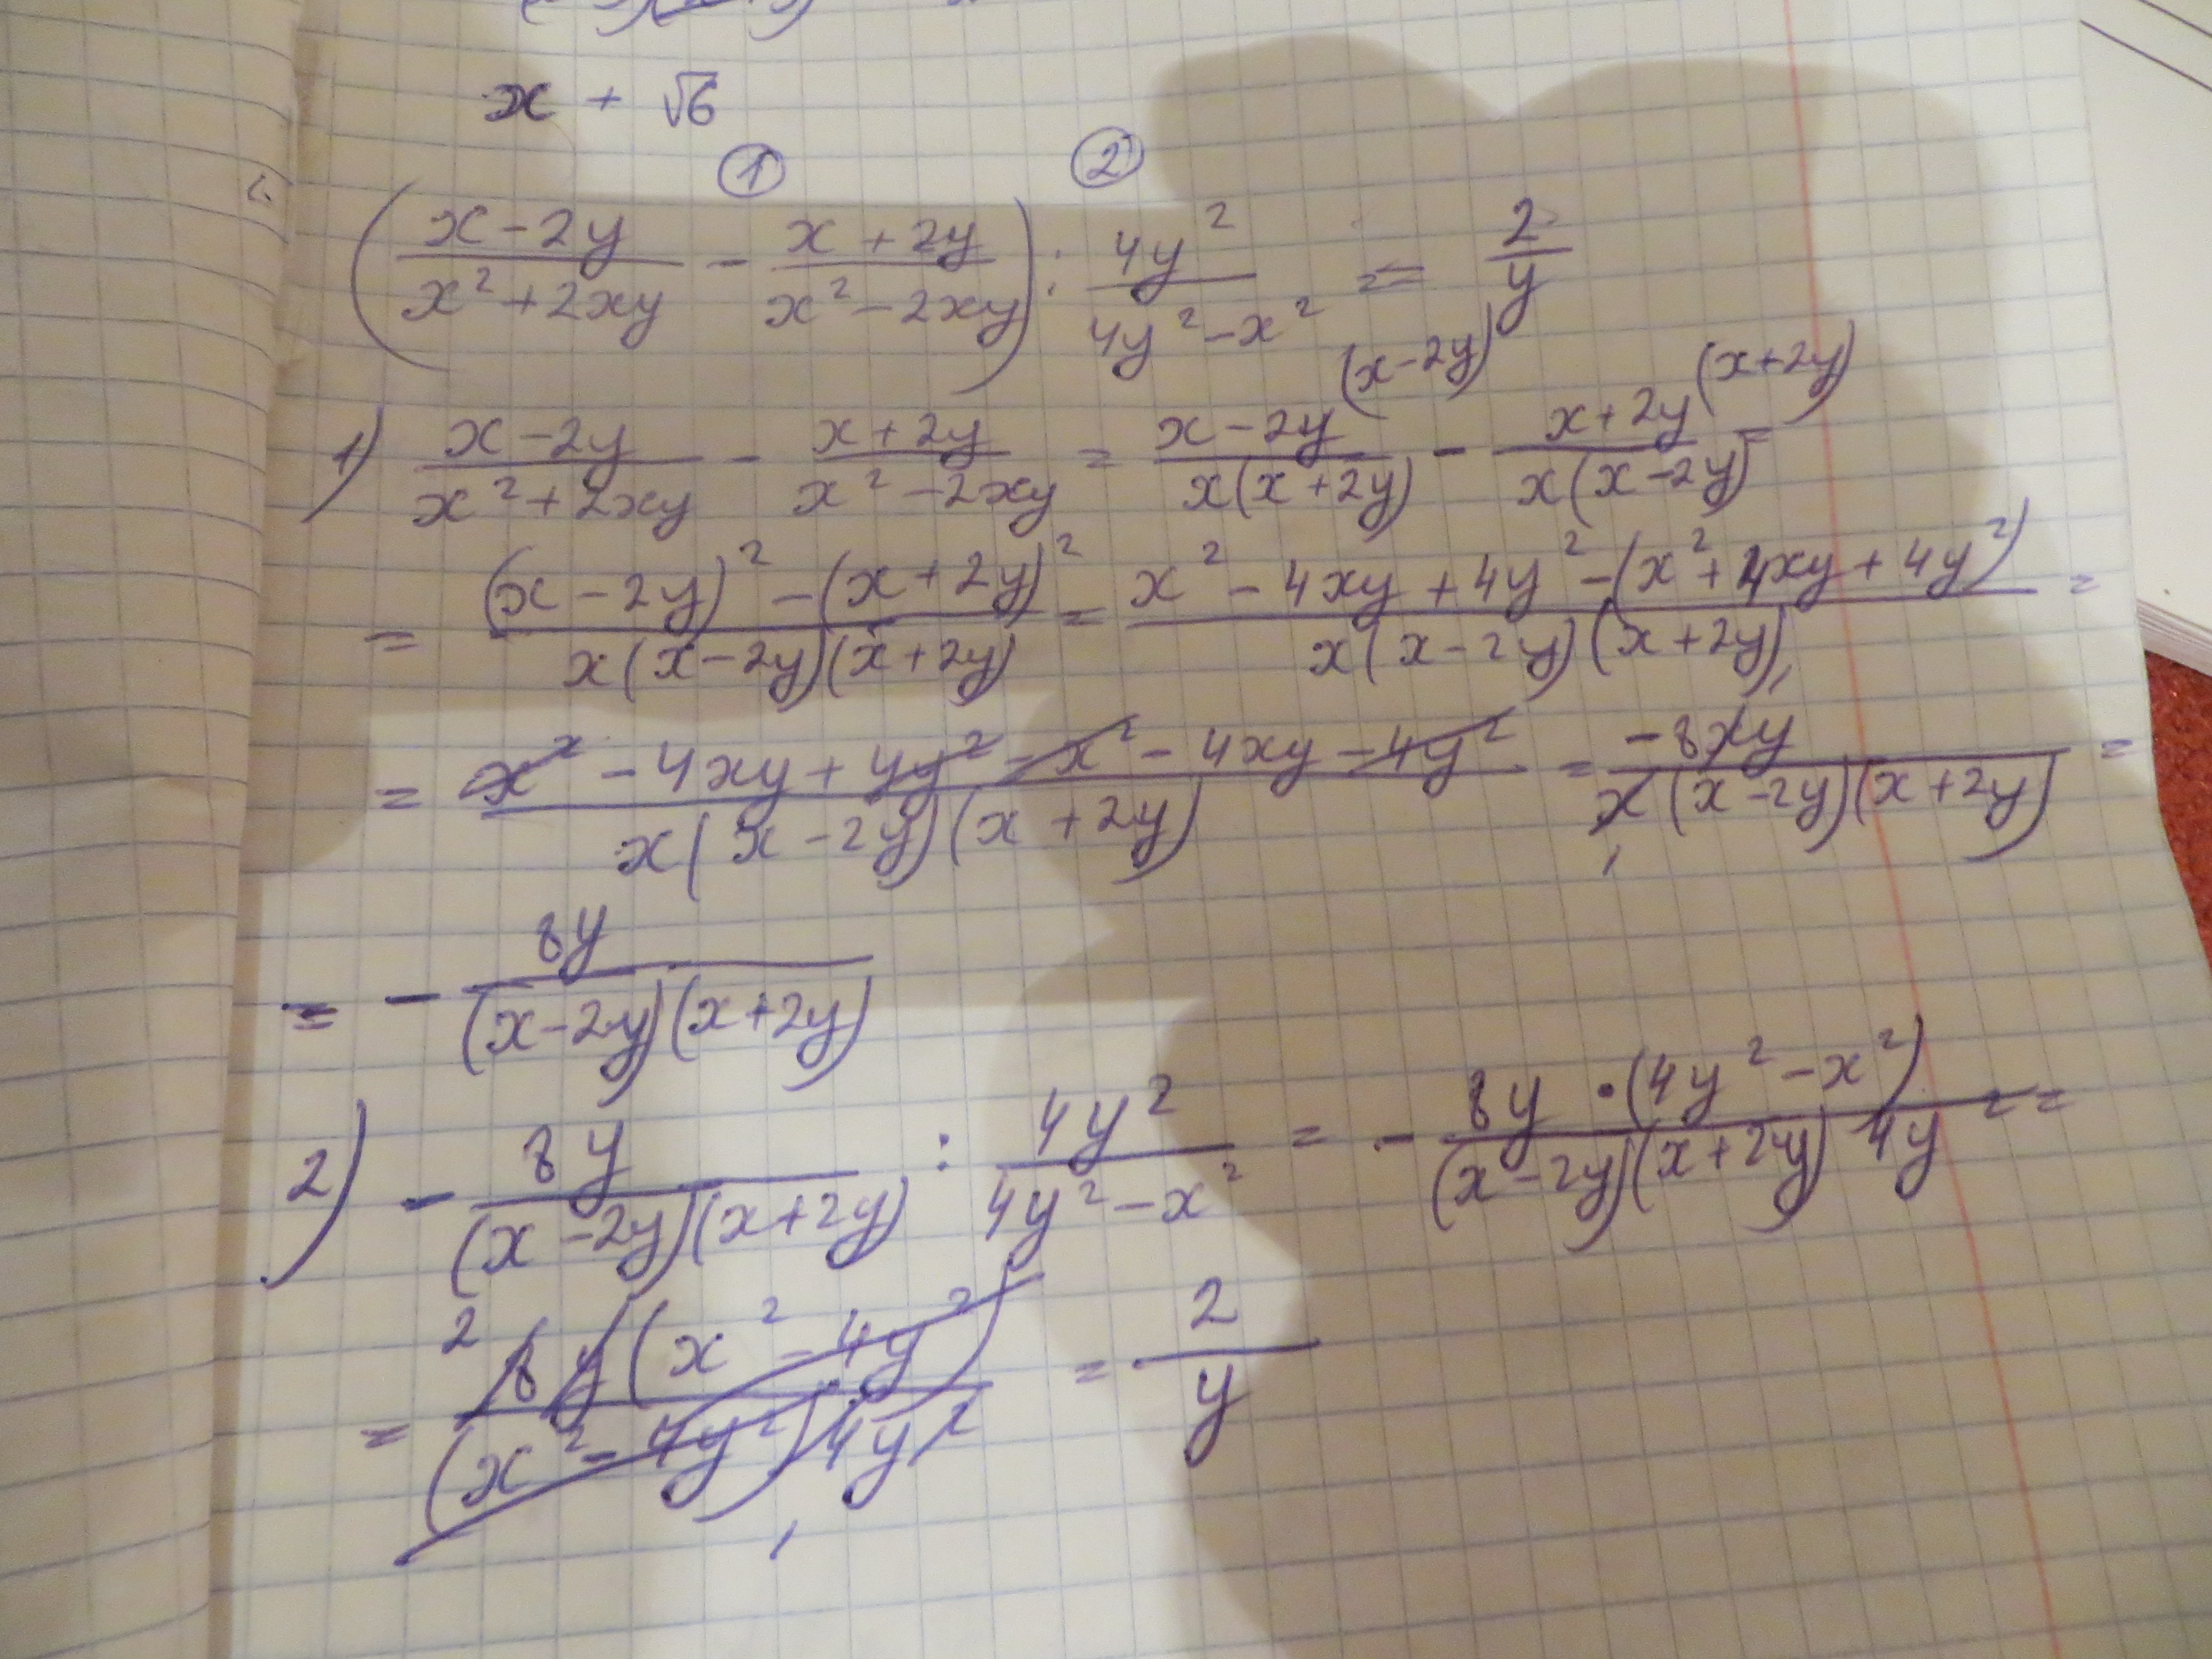 x + √6
① ②
((x-2y)/(x²+2xy) - (x+2y)/(x²-2xy)) : 4y²/(4y²-x²) = 2/y
1) (x-2y)/(x²+2xy) - (x+2y)/(x²-2xy) = (x-2y)/(x(x+2y)) ^(x-2y) - (x+2y)/(x(x-2y)) ^(x+2y) =
= ((x-2y)²-(x+2y)²)/(x(x-2y)(x+2y)) = (x²-4xy+4y²-(x²+4xy+4y²))/(x(x-2y)(x+2y)) =
= (x²-4xy+4y²-x²-4xy-4y²)/(x(x-2y)(x+2y)) = (-8xy)/(x(x-2y)(x+2y)) =
= - 8y/((x-2y)(x+2y))
2) - 8y/((x-2y)(x+2y)) : 4y²/(4y²-x²) = - (8y·(4y²-x²))/((x-2y)(x+2y) 4y²) =
= (²8y(x²-4y²))/((x²-4y²)4y²) = 2/y